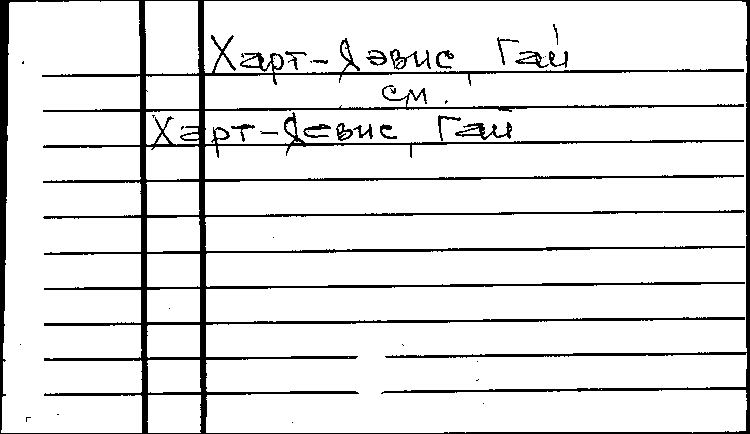 Харт-Дэвис, Гай
см.
Харт-Девис, Гай